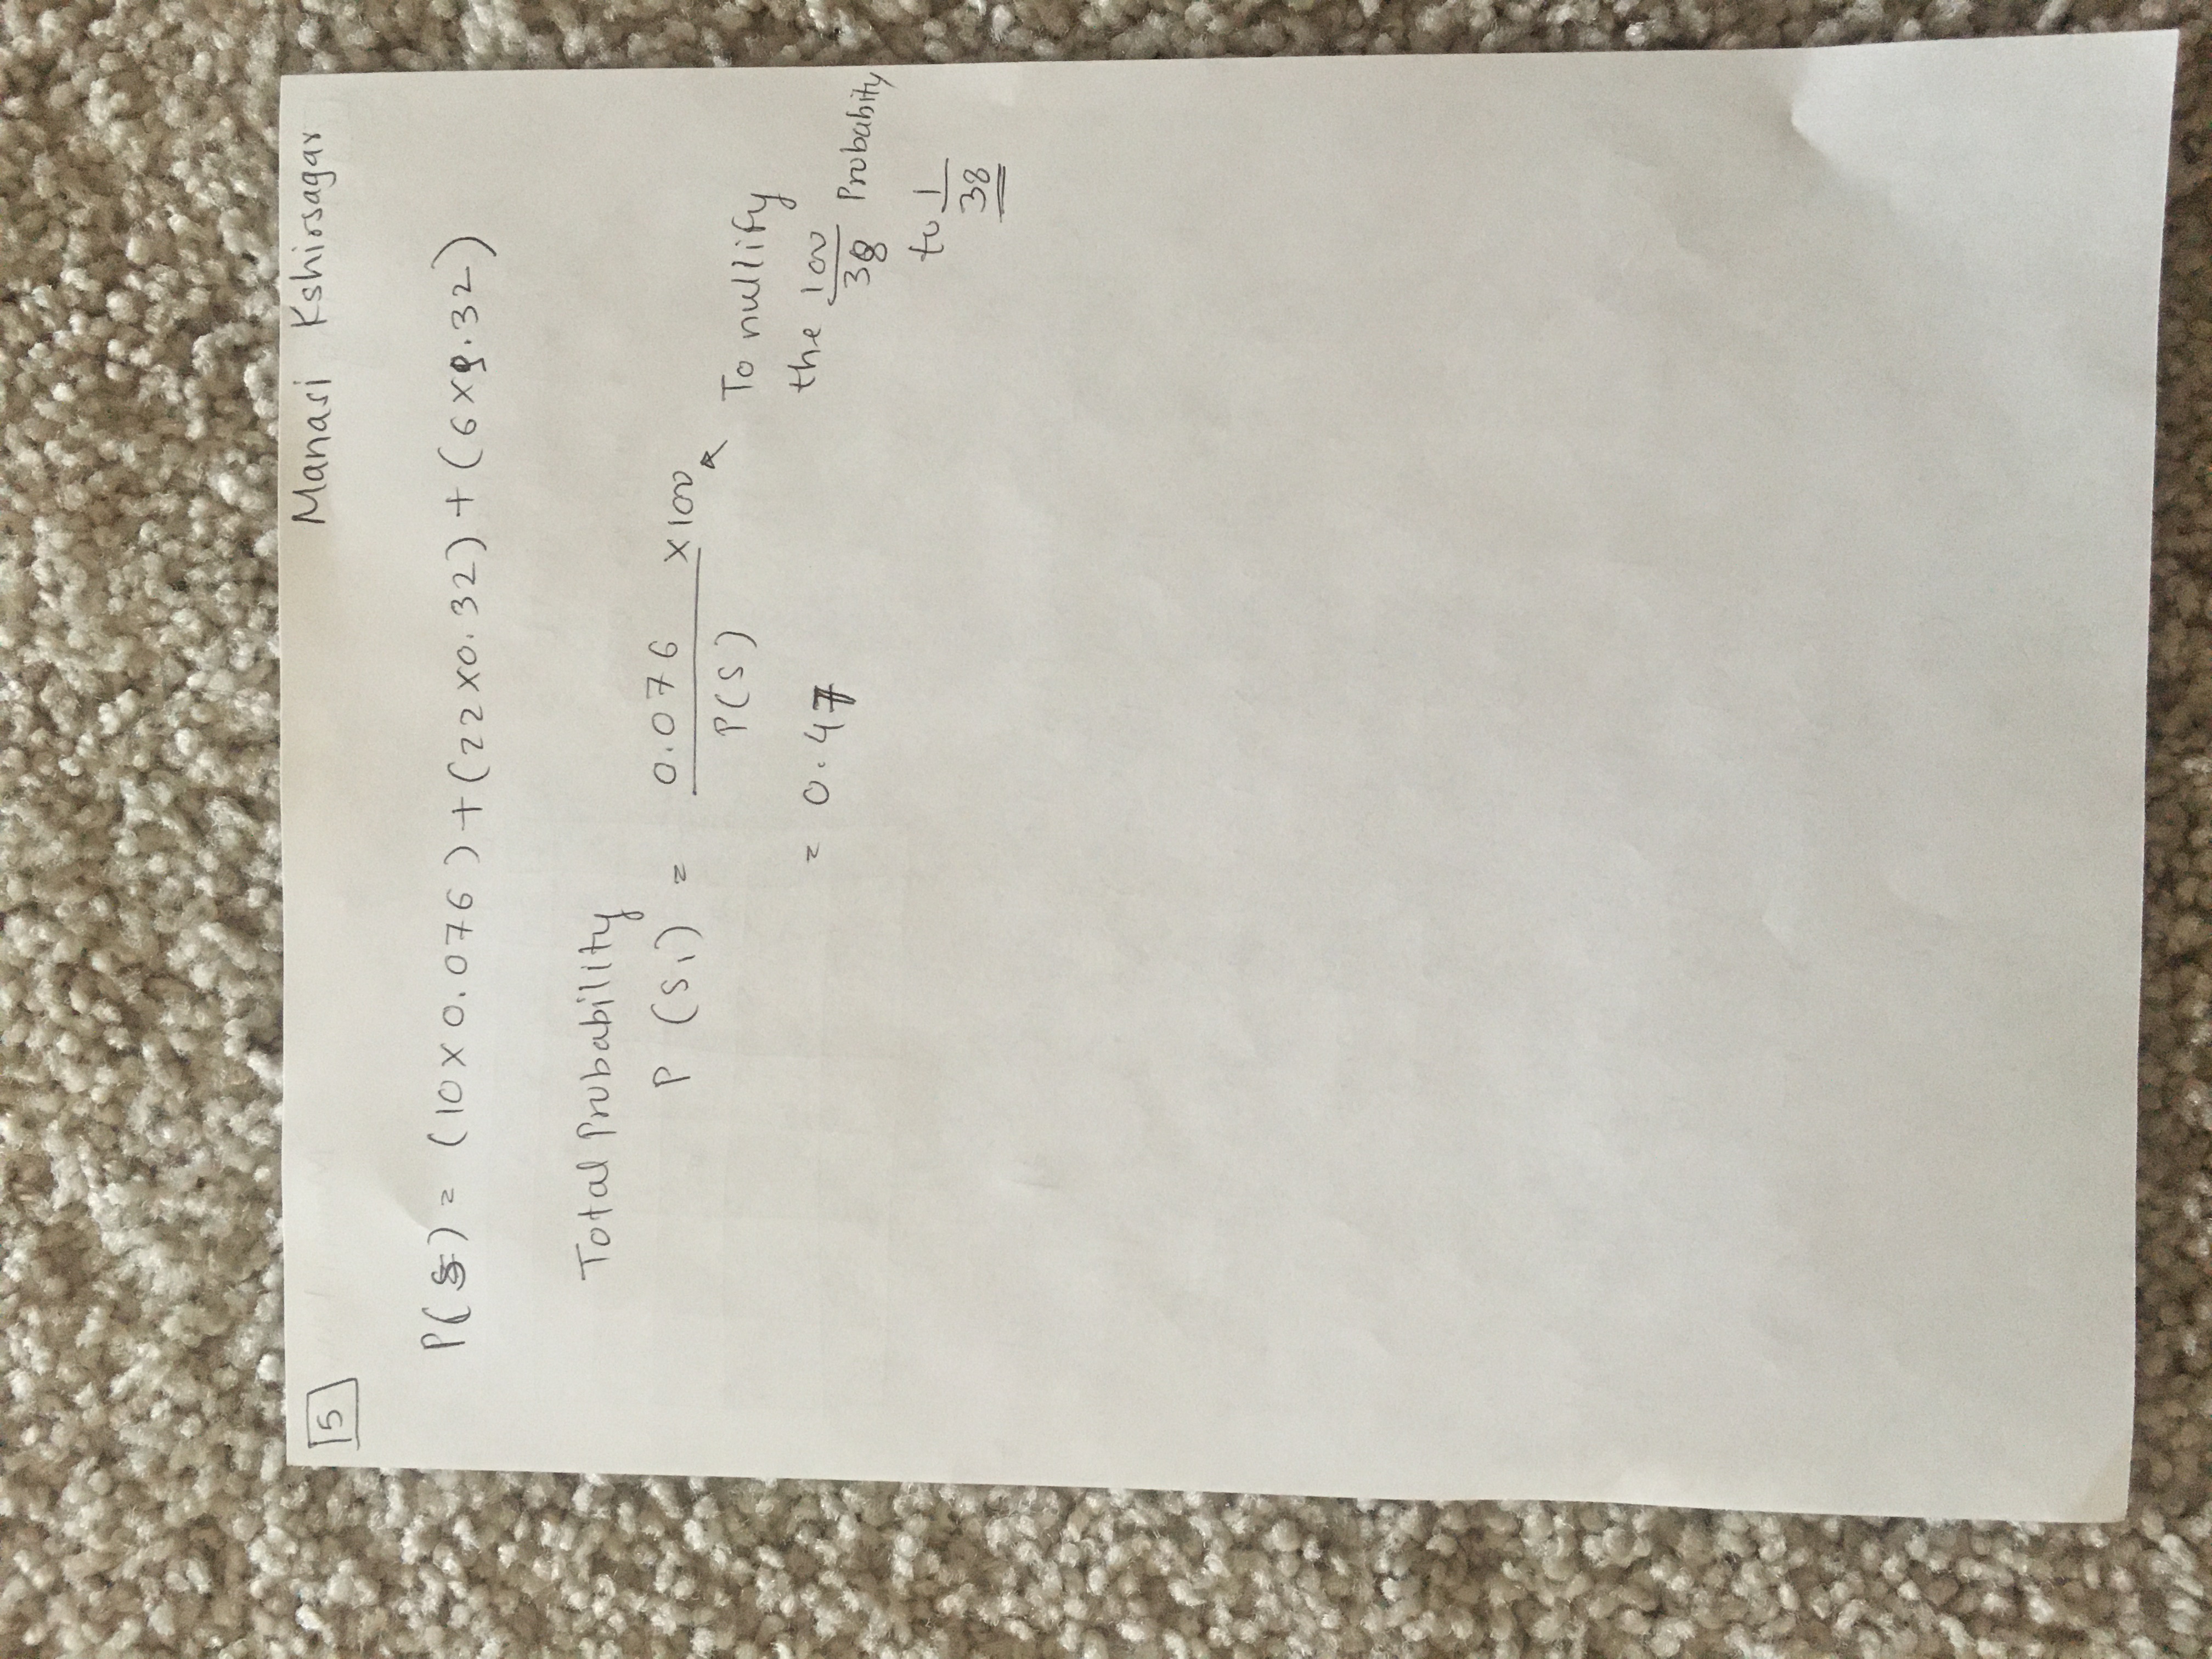 5
Manasi Kshirsagar
P(S) = (10 x 0.076) + (22 x 0.32) + (6 x 9.32)
Total Probability
P (S1) = 0.076 / P(S) x 100
= 0.47
To nullify
the 100/38 Probabity
to 1/38